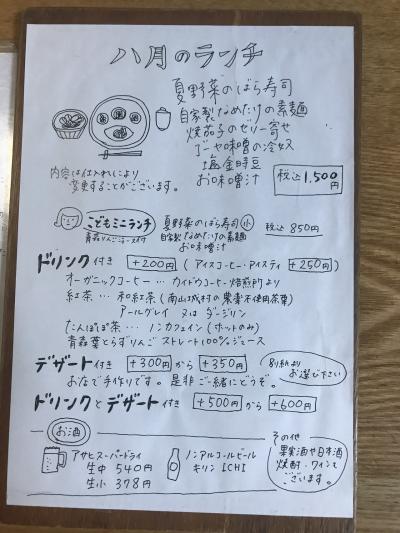 八月のランチ
夏野菜のばら寿司
自家製なめたけの素麺
焼茄子のゼリー寄せ
ゴーヤ味噌の冷奴
塩金時豆
お味噌汁
内容は仕入れにより
変更することがございます。
税込 1,500円
こどもミニランチ
青森りんごジュース付
夏野菜のばら寿司 小
自家製なめたけの素麺
お味噌汁
税込 850円
ドリンク付き +200円 (アイスコーヒー・アイスティ +250円)
オーガニックコーヒー… カイトウコーヒー焙煎所より
紅茶… 和紅茶(南山城村の農薬不使用茶葉)
アールグレイ 又は ダージリン
たんぽぽ茶… ノンカフェイン(ホットのみ)
青森葉とらずりんごストレート100%ジュース
デザート付き +300円から +350円
別紙より
お選び下さい
おなで手作りです。是非ご一緒にどうぞ。
ドリンクとデザート付き +500円から +600円
お酒
アサヒスーパードライ
生中 540円
生小 378円
ノンアルコールビール
キリン ICHI
その他
果実酒や日本酒
焼酎・ワインも
ございます。